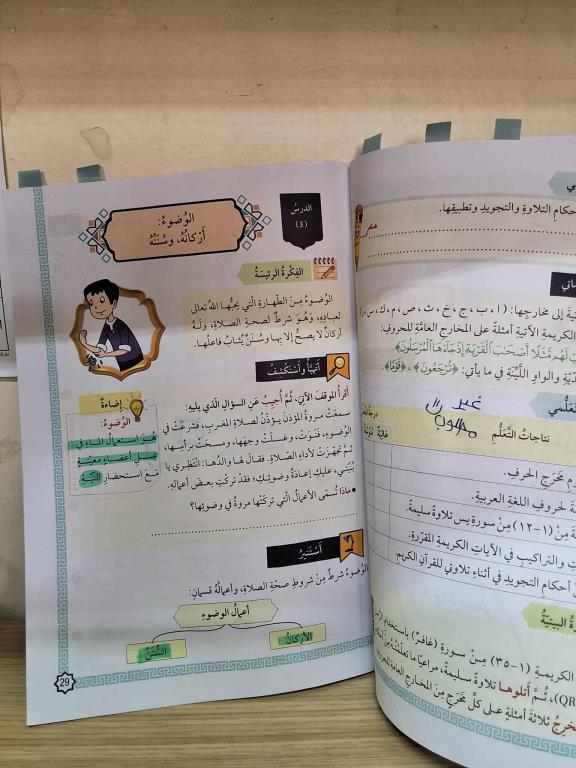 الدرسُ
(5)
الوُضوءُ:
أَرْكانُهُ، وسُنَنُهُ
الفِكْرَةُ الرئيسَةُ
الوُضوءُ مِنَ الطَّهارةِ الَّتي يحبُّها اللهُ تعالى
لعبادِهِ، وَهُوَ شرطٌ لصحةِ الصلاةِ، ولَهُ
أركانٌ لا يصحُّ إلا بها وسُنَنٌ يُثابُ فاعلُها.
أَتَهَيَّأُ وأَسْتَكْشِفُ
أقرأُ الموقفَ الآتيَ، ثُمَّ أُجيبُ عنِ السؤالِ الَّذي يليهِ:
سمعَتْ مروةُ المؤذنَ يؤذّنُ لصلاةِ المغربِ، فشرعَتْ في
الوضوءِ، فنوَتْ، وغسلَتْ وجهَها، ومسحَتْ برأسِها،
ثمَّ تجهَّزَتْ لأداءِ الصلاةِ. فقالَ لها والدُها: انتظِري يا
بُنَيَّتي، عليكِ إعادةُ وضوئِكِ؛ فقدْ تركْتِ بعضَ أعمالِهِ.
• ماذا تُسمّى الأعمالُ الَّتي تركَتْها مروةُ في وضوئِها؟
إضاءةٌ
الوُضوءُ:
هُوَ استعمالُ الماءِ في
غسلِ أعضاءٍ معيَّنةٍ
معَ استحضارِ النِّيَّةِ
أَسْتَنيرُ
الوُضوءُ شرطٌ مِنْ شروطِ صحّةِ الصلاةِ، وأعمالُهُ قسمانِ:
أعمالُ الوضوءِ
الأركانُ
السُّنَنُ
29
أحكامِ التلاوةِ والتجويدِ وتطبيقِها.
إلى مخارجِها: (ا، ب، ج، خ، ث، ص، م، ك، س
الكريمةِ الآتيةِ أمثلةً على المخارجِ العامَّةِ للحروفِ:
لَهُم مَّثَلًا أَصْحَابَ الْقَرْيَةِ إِذْ جَاءَهَا الْمُرْسَلُونَ﴾
والواوِ اللَّيِّنَةِ في ما يأتي: ﴿تُرْجَعُونَ﴾، ﴿قَوْمًا﴾.
غير
مطلوب
نتاجاتُ التعلُّمِ
درجةُ
عاليةٌ
مَخرَجَ الحرفِ.
لحروفِ اللغةِ العربيةِ.
مِنْ (١-١٢) مِنْ سورةِ يس تلاوةً سليمةً.
والتراكيبِ في الآياتِ الكريمةِ المقرَّرةِ.
أحكامَ التجويدِ في أثناءِ تلاوتي للقرآنِ الكريمِ.
البيتيَّةُ
الكريمةِ (١-٣٥) مِنْ سورةِ (غافرٍ) باستخدامِ
(QR)، ثُمَّ أتلوها تلاوةً سليمةً، مراعيًا ما تعلَّمْتُ
ثلاثةَ أمثلةٍ على كلِّ مخرجٍ مِنَ المخارجِ العامةِ